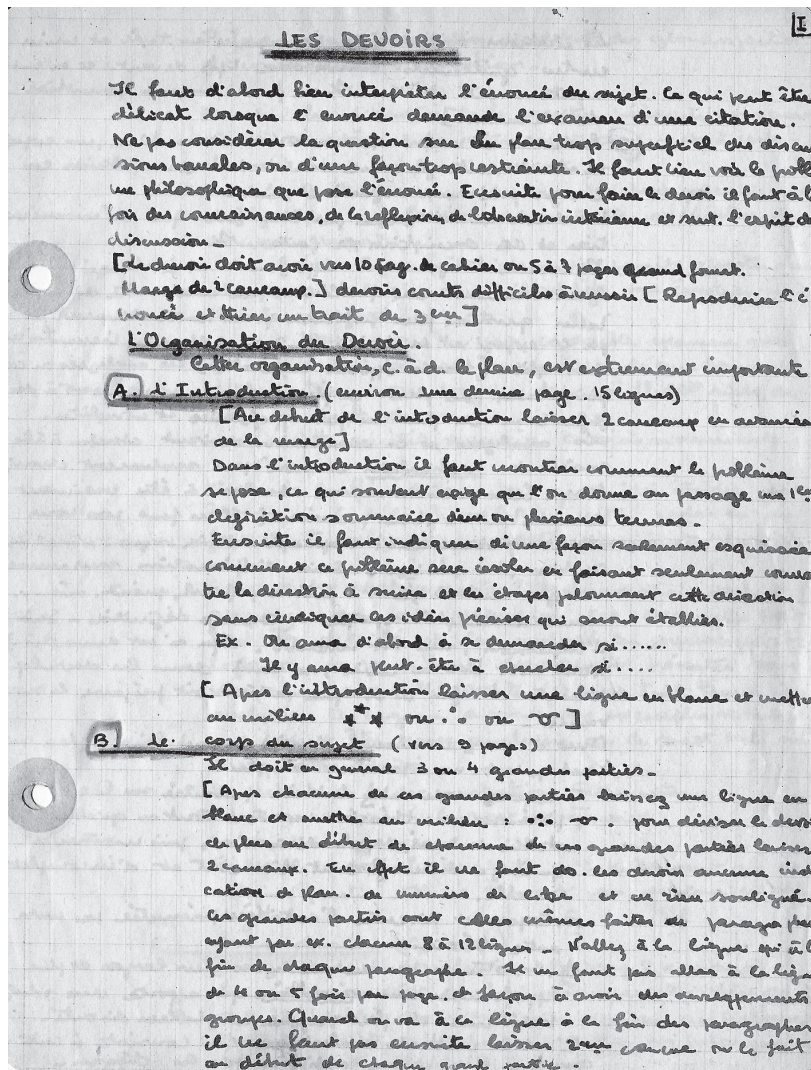 I
LES DEVOIRS
Il faut d'abord bien interpréter l'énoncé du sujet. Ce qui peut être
délicat lorsque l'énoncé demande l'examen d'une citation.
Ne pas considérer la question sur un plan trop superficiel des discus
sions banales, ou d'une façon trop restreinte. Il faut bien voir le problè
me philosophique que pose l'énoncé. Ensuite pour faire le devoir il faut à la
fois des connaissances, de la réflexion, de l'observation intérieure et surt. l'esprit de
discussion_
[Le devoir doit avoir vers 10 pag. de cahier ou 5 à 7 pages grand format.
Marge de 2 carreaux.] devoirs courts difficiles à réussir [Reproduire l'é
noncé et tirer un trait de 3 cm]
L'Organisation du Devoir.
Cette organisation, c. à d. le plan, est extrêmement importante
A. l'Introduction. (environ une demie page. 15 lignes)
[Au début de l'introduction laisser 2 carreaux en
de la marge]
Dans l'introduction il faut montrer comment le problème
se pose, ce qui souvent exige que l'on donne au passage une 1ère
définition sommaire d'un ou plusieurs termes.
Ensuite il faut indiquer d'une façon seulement esquissée
comment ce problème sera résolu en faisant seulement connaî
tre la direction à suivre et les étapes jalonnant cette direction
sans indiquer les idées précises qui seront établies.
Ex. On aura d'abord à se demander si ......
Il y aura peut-être à chercher si ....
[Après l'introduction laisser une ligne en blanc et mettre
au milieu *** ou ou ]
B. Le corps du sujet (vers 9 pages)
Il doit en général 3 ou 4 grandes parties_
[Après chacune de ces grandes parties laissez une ligne en
blanc et mettre au milieu : . pour diviser le devoir
de plus au début de chacune de ces grandes parties laisser
2 carreaux. En effet il ne faut ds. les devoirs aucune indi
cation de plan. de numéros de titre et ne rien souligné.
Ces grandes parties sont elles mêmes faites de paragraphes
ayant par ex. chacune 8 à 12 lignes _ N'allez à la ligne qu'à la
fin de chaque paragraphe. Il ne faut pas aller à la ligne
de 4 ou 5 fois par page. de façon à avoir des développements
groupés. Quand on va à la ligne à la fin des paragraphes
il ne faut pas ensuite laisser comme on le fait
au début de chaque grand partie.